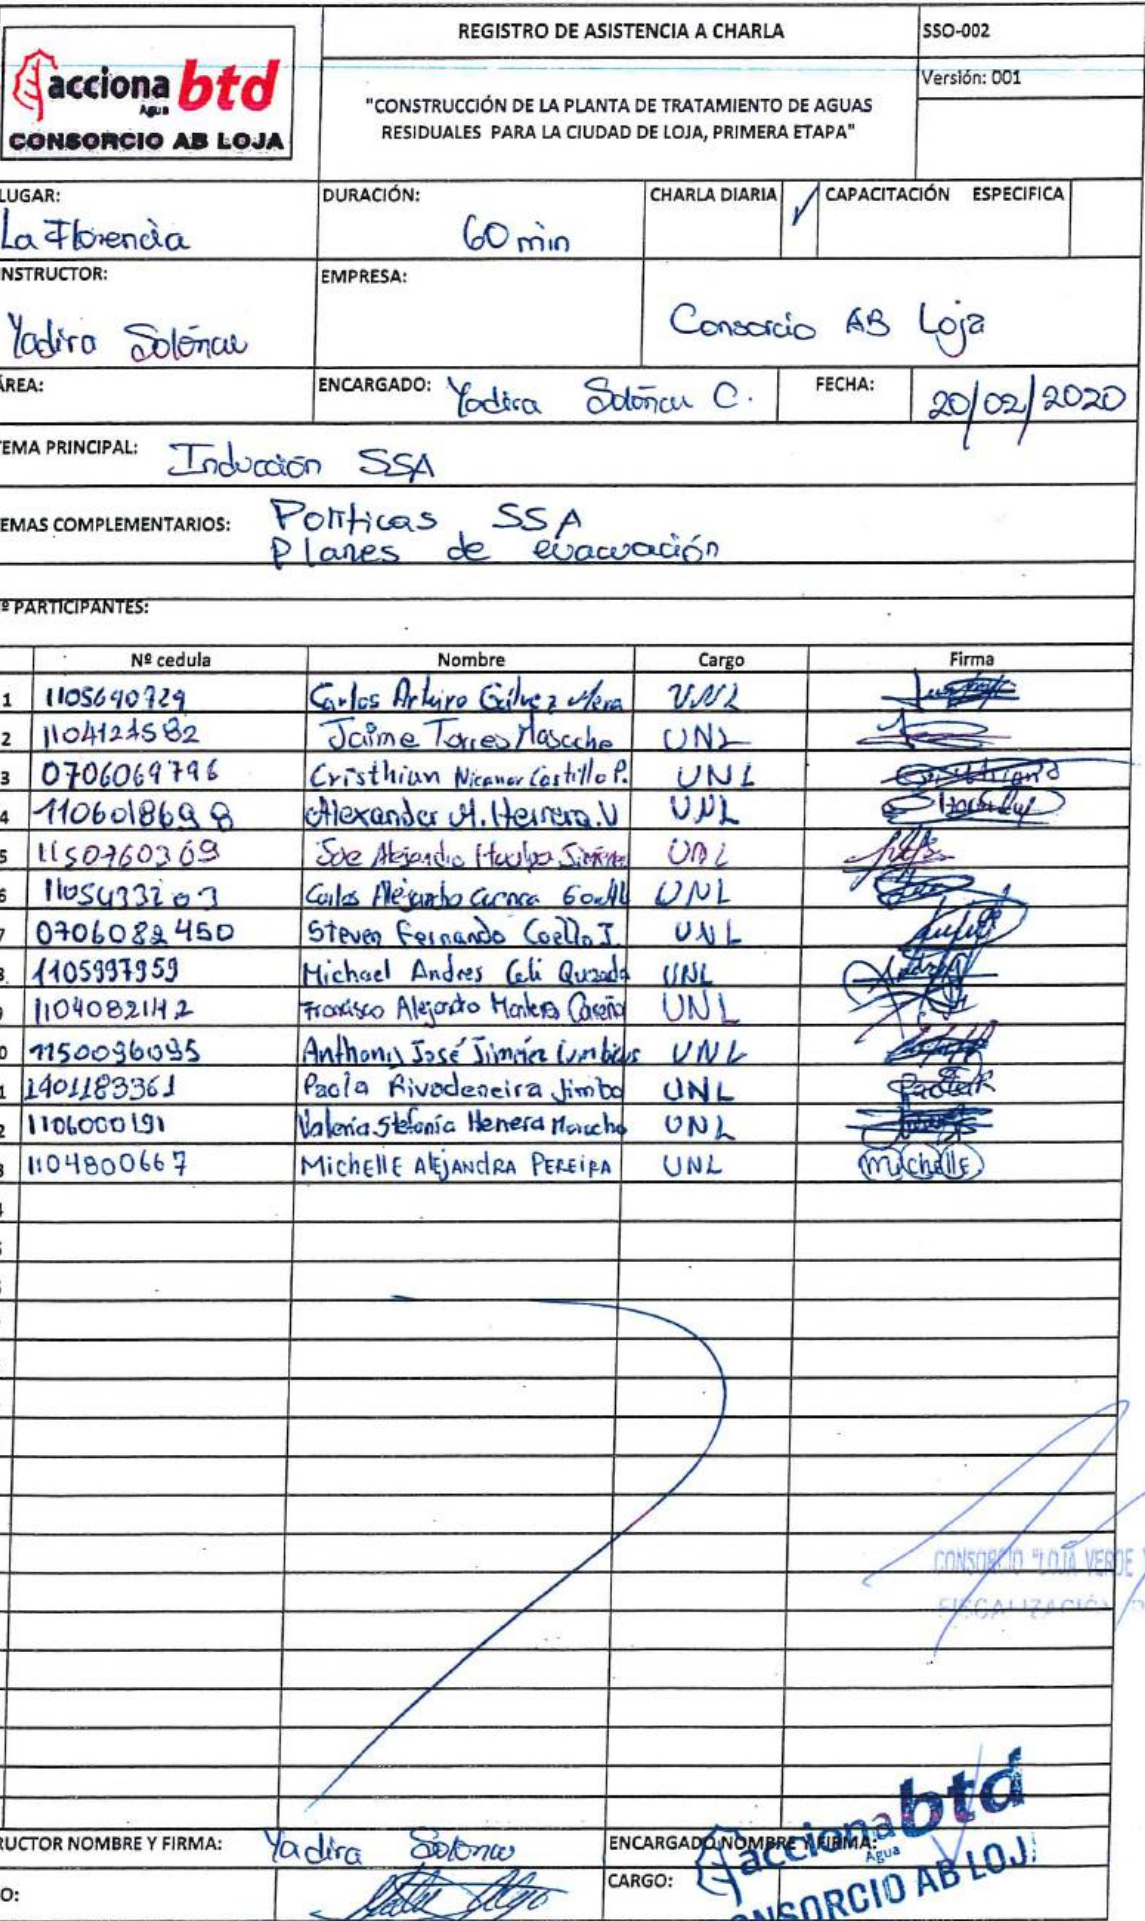 REGISTRO DE ASISTENCIA A CHARLA
SSO-002
acciona btd
Agua
CONSORCIO AB LOJA
Versión: 001
"CONSTRUCCIÓN DE LA PLANTA DE TRATAMIENTO DE AGUAS
RESIDUALES PARA LA CIUDAD DE LOJA, PRIMERA ETAPA"
LUGAR:
La Florencia
DURACIÓN:
60 min
CHARLA DIARIA ✓
CAPACITACIÓN ESPECIFICA
NSTRUCTOR:
Yadira Solónau
EMPRESA:
Consorcio AB Loja
ÁREA:
ENCARGADO: Yadira C.
FECHA: 20/02/2020
TEMA PRINCIPAL: Inducción SSA
EMAS COMPLEMENTARIOS: Políticas SSA
Planes de evacuación
º PARTICIPANTES:
Nº cedula Nombre Cargo Firma
1 Carlos Arturo Gálvez Mera UNL
2 Jaime Torres Masache UNL
3 0706069796 Cristhian Nicanor Castillo P. UNL
4 1106018698 Alexander M. Herrera. V UNL
5 1150760369 Jose Alejandro Jiménez UNL
6 Carlos Alejandro UNL
7 0706082450 Steven Fernando Coello J. UNL
8 1105997959 Michael Andres Celi Quezada UNL
9 1104082142 Francisco Alejandro Montero UNL
0 1150096095 Anthony José Jiménez UNL
1 1401183361 Paola Rivadeneira Jimbo UNL PaolaR
2 1106000191 Valeria Stefanía Herrera UNL
3 1104800667 MichEllE AlEjANdRA PEREiRA UNL Michelle
CONSORCIO "LOJA VERDE
FISCALIZACIÓN
RUCTOR NOMBRE Y FIRMA: Yadira
ENCARGADO NOMBRE Y FIRMA:
O:
CARGO:
acciona btd
Agua
NSORCIO AB LOJ